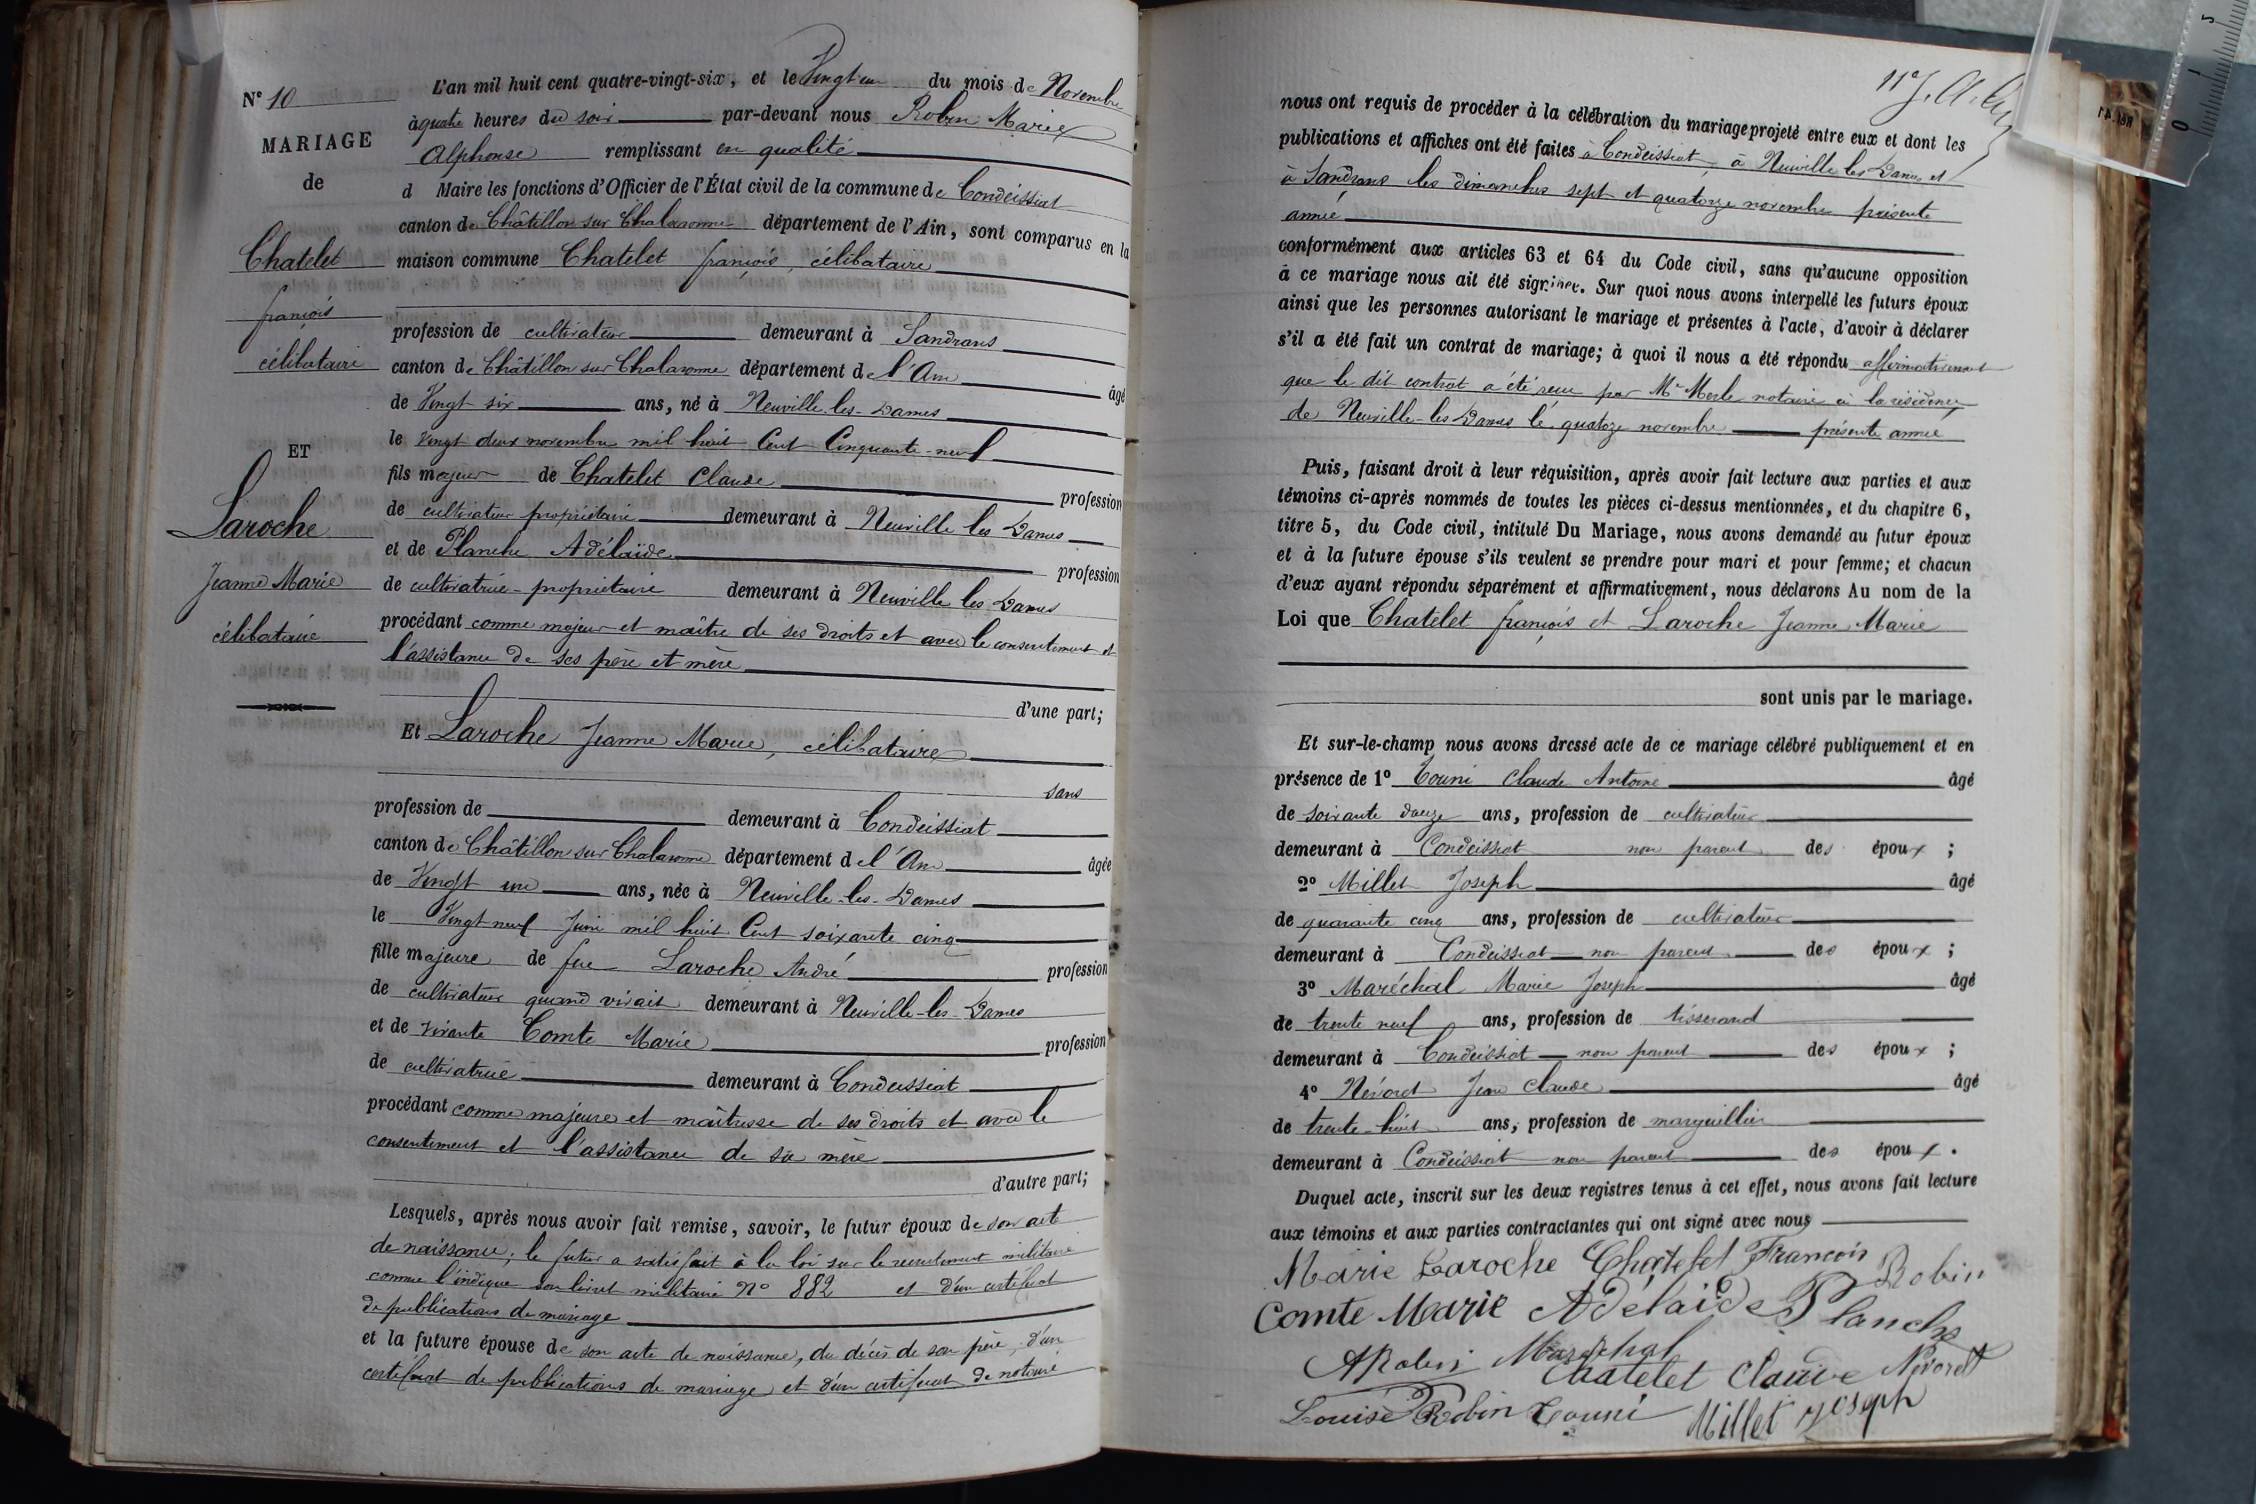 N° 10
MARIAGE
de
Chatelet
françois
célibataire
ET
Laroche
Jeanne Marie
célibataire
L'an mil huit cent quatre-vingt-six, et le Vingt un du mois de Novembre
à quatre heures du soir par-devant nous Robin Marie
Alphonse remplissant en qualité
d Maire les fonctions d'Officier de l'État civil de la commune de Condeissiat
canton de Châtillon sur Chalaronne département de l'Ain, sont comparus en la
maison commune Chatelet françois, célibataire
profession de cultivateur demeurant à Sandrans
canton de Châtillon sur Chalaronne département de l'Ain âgé
de Vingt six ans, né à Neuville-les-Dames
le Vingt deux novembre mil huit Cent Cinquante-neuf
fils majeur de Chatelet Claude profession
de cultivateur propriétaire demeurant à Neuville les Dames
et de Planche Adélaïde profession
de cultivatrice-propriétaire demeurant à Neuville les Dames
procédant comme majeur et maître de ses droits et avec le consentement et
l'assistance de ses père et mère
d'une part;
Et Laroche Jeanne Marie, célibataire
sans
profession de demeurant à Condeissiat
canton de Châtillon sur Chalaronne département de l'Ain âgée
de Vingt un ans, née à Neuville-les-Dames
le Vingt neuf Juin mil huit Cent soixante cinq
fille majeure de feu Laroche André profession
de cultivateur quand vivait demeurant à Neuville-les-Dames
et de vivante Comte Marie profession
de cultivatrice demeurant à Condeissiat
procédant comme majeure et maîtresse de ses droits et avec le
consentement et l'assistance de sa mère
d'autre part;
Lesquels, après nous avoir fait remise, savoir, le futur époux de son acte
de naissance; le futur a satisfait à la loi sur le recrutement militaire
comme l'indique son livret militaire N° 882 et d'un certificat
de publications de mariage
et la future épouse de son acte de naissance, du décès de son père, d'un
certificat de publications de mariage et d'un certificat de notaire
nous ont requis de procéder à la célébration du mariage projeté entre eux et dont les
publications et affiches ont été faites à Condeissiat, à Neuville les Dames et
à Sandrans les dimanches sept et quatorze novembre présente
année
conformément aux articles 63 et 64 du Code civil, sans qu'aucune opposition
à ce mariage nous ait été signifiée. Sur quoi nous avons interpellé les futurs époux
ainsi que les personnes autorisant le mariage et présentes à l'acte, d'avoir à déclarer
s'il a été fait un contrat de mariage; à quoi il nous a été répondu affirmativement
que le dit contrat a été reçu par Me Merle notaire à la résidence
de Neuville-les-Dames le quatoze novembre présente année
Puis, faisant droit à leur réquisition, après avoir fait lecture aux parties et aux
témoins ci-après nommés de toutes les pièces ci-dessus mentionnées, et du chapitre 6,
titre 5, du Code civil, intitulé Du Mariage, nous avons demandé au futur époux
et à la future épouse s'ils veulent se prendre pour mari et pour femme; et chacun
d'eux ayant répondu séparément et affirmativement, nous déclarons Au nom de la
Loi que Chatelet françois et Laroche Jeanne Marie
sont unis par le mariage.
Et sur-le-champ nous avons dressé acte de ce mariage célébré publiquement et en
présence de 1° Touni Claude Antoine âgé
de soixante douze ans, profession de cultivateur
demeurant à Condeissiat non parent des époux ;
2° Millet Joseph âgé
de quarante cinq ans, profession de cultivateur
demeurant à Condeissiat non parent des époux ;
3° Maréchal Marie Joseph âgé
de trente neuf ans, profession de tisserand
demeurant à Condeissiat non parent des époux ;
4° Névoret Jean Claude âgé
de trente-huit ans, profession de marguillier
demeurant à Condeissiat non parent des époux .
Duquel acte, inscrit sur les deux registres tenus à cet effet, nous avons fait lecture
aux témoins et aux parties contractantes qui ont signé avec nous
Marie Laroche Chatelet François Robin
Comte Marie Adélaïde Planche
ARobin Maréchal Chatelet Claude Névoret
Louise Robin Touni Millet Joseph